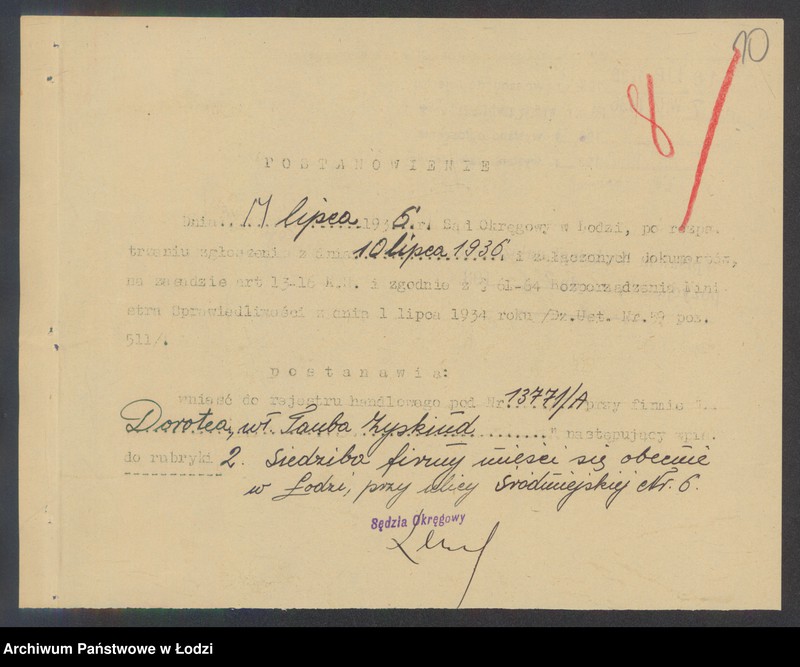 10
8
POSTANOWIENIE
Dnia 17 lipca 1936 r. Sąd Okręgowy w Łodzi, po rozpa-
trzeniu zgłoszenia z dnia 10 lipca 1936 i załączonych dokumentów,
na zasadzie art 13-16 K.H. i zgodnie z § 61-64 Rozporządzenia Mini
stra Sprawiedliwości z dnia 1 lipca 1934 roku /Dz.Ust. Nr. 59 poz.
511/.
postanawia:
wnieść do rejestru handlowego pod Nr. 13771/A przy firmie "
Dorotea, wł. Tauba Zyskind" następujący wpis.
do rubryki 2. Siedziba firmy mieści się obecnie
w Łodzi, przy ulicy Śródmiejskiej Nr. 6.
Sędzia Okręgowy
Archiwum Państwowe w Łodzi